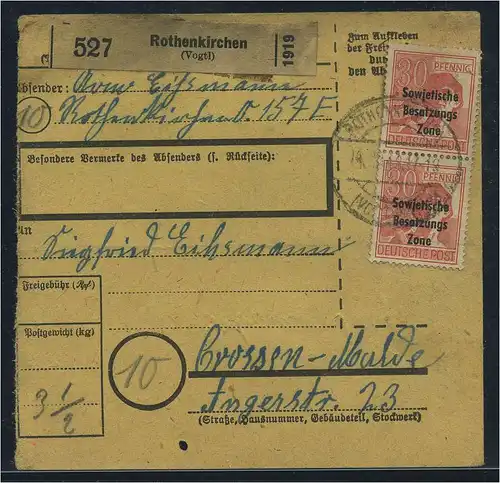 527
Rothenkirchen
(Vogtl)
1919
Zum Aufkleben
der Frei
du
den Ab
Absender:
Eihsmann
10
Rothenkirchen
Besondere Vermerke des Absenders (s. Rückseite):
30 PFENNIG
Sowjetische
Besatzungs
Zone
DEUTSCHE POST
30 PFENNIG
Sowjetische
Besatzungs
Zone
DEUTSCHE POST
An
Siegfried Eihsmann
Freigebühr (Rpf)
Postgewicht (kg)
3 1/2
10
Crossen-Mulde
Angerstr. 23
(Straße, Hausnummer, Gebäudeteil, Stockwerk)